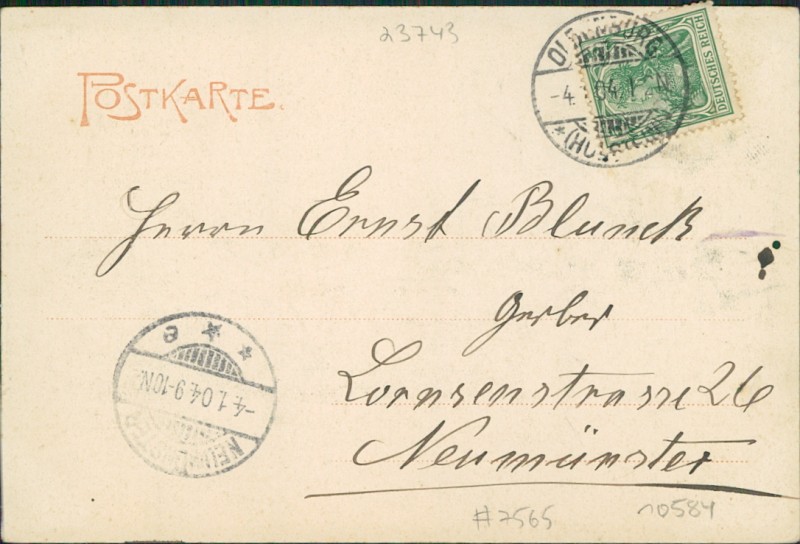 23743
POSTKARTE.
OLDENBURG
-4.1.04.1-N
*(HOLSTEIN)
DEUTSCHES REICH
Herrn Ernst Blunck
Gerber
Lornsenstrasse 26
Neumünster
NEUMÜNSTER
-4.1.04.9-10N.
* * a
#7565
10584